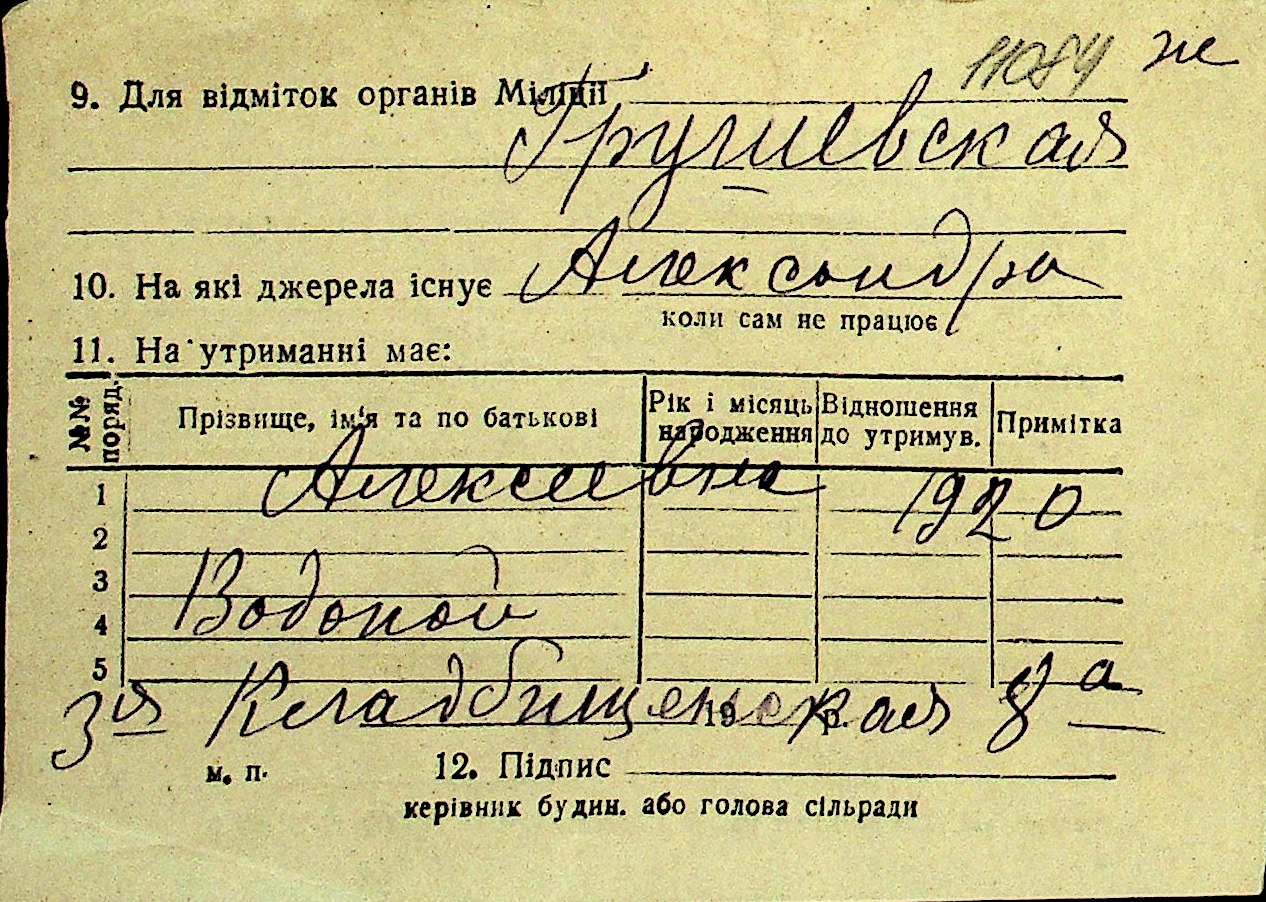 11084 же
9. Для відміток органів Міліції
Грушевская
10. На які джерела існує Александра
коли сам не працює
11. На утриманні має:
№№ поряд. Прізвище, ім'я та по батькові Рік і місяць народження Відношення до утримув. Примітка
Алексеевна 1920
1
2
3
Водопой
4
5
3я Кладбищенская 8а
19 р.
м. п. 12. Підпис
керівник будин. або голова сільради